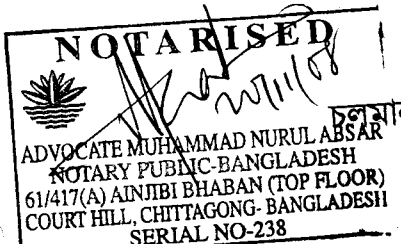 NOTARISED
চলমান
ADVOCATE MUHAMMAD NURUL ABSAR
NOTARY PUBLIC-BANGLADESH
61/417(A) AINJIBI BHABAN (TOP FLOOR)
COURT HILL, CHITTAGONG- BANGLADESH
SERIAL NO-238